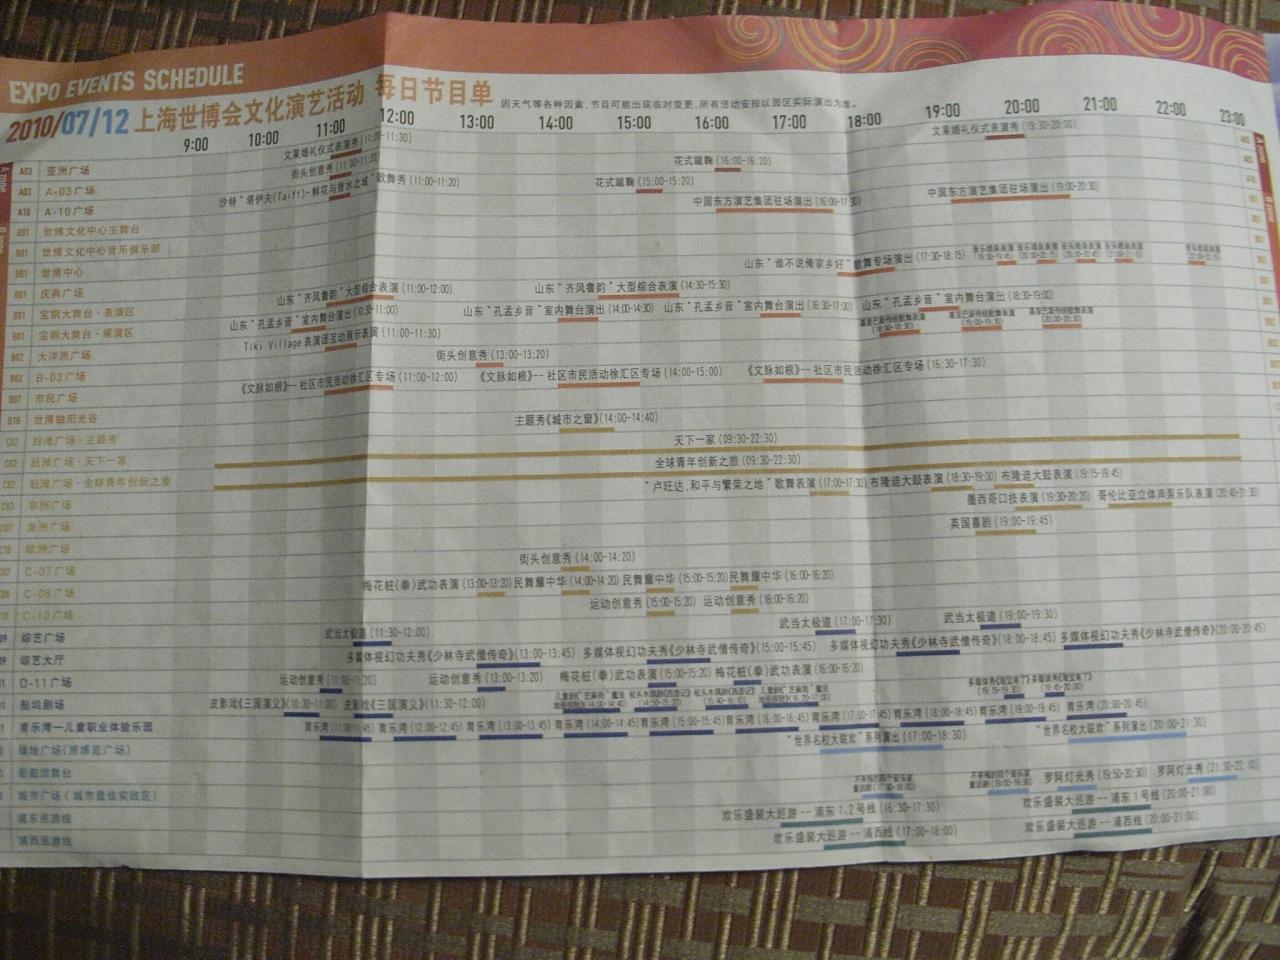 EXPO EVENTS SCHEDULE
2010/07/12 上海世博会文化演艺活动 每日节目单 因天气等各种因素,节目可能出现临时变更,所有活动安排以园区实际演出为准。
9:00 10:00 11:00 12:00 13:00 14:00 15:00 16:00 17:00 18:00 19:00 20:00 21:00 22:00 23:00
文莱婚礼仪式表演秀(11:00-11:30) 文莱婚礼仪式表演秀(19:30-20:00)
A03 亚洲广场 街头创意秀(11:00-11:20) 花式蹴鞠(16:00-16:20)
A03 A-03广场 沙特"塔伊夫(Taiff)-鲜花与香水之城"歌舞秀(11:00-11:20) 花式蹴鞠(15:00-15:20)
A10 A-10广场 中国东方演艺集团驻场演出(16:00-17:30) 中国东方演艺集团驻场演出(19:00-20:30)
B01 世博文化中心主舞台
B01 世博文化中心音乐俱乐部
B01 世博中心 山东"谁不说俺家乡好"歌舞专场演出(17:30-18:15)
B01 庆典广场 山东"齐风鲁韵"大型综合表演(11:00-12:00) 山东"齐风鲁韵"大型综合表演(14:30-15:30)
B01 宝钢大舞台·表演区 山东"孔孟乡音"室内舞台演出(10:30-11:00) 山东"孔孟乡音"室内舞台演出(14:00-14:30) 山东"孔孟乡音"室内舞台演出(16:30-17:00) 山东"孔孟乡音"室内舞台演出(18:30-19:00)
B01 宝钢大舞台·展演区 Tiki Village表演团互动展示表演(11:00-11:30) 基里巴斯传统歌舞表演(18:00-18:30) 基里巴斯传统歌舞表演(19:00-19:30) 基里巴斯传统歌舞表演(20:00-20:30)
B02 大洋洲广场 街头创意秀(13:00-13:20)
B03 B-03广场 《文脉如根》--社区市民活动徐汇区专场(11:00-12:00) 《文脉如根》--社区市民活动徐汇区专场(14:00-15:00) 《文脉如根》--社区市民活动徐汇区专场(16:30-17:30)
B07 市民广场
B16 世博轴阳光谷 主题秀《城市之窗》(14:00-14:40)
C02 后滩广场·主题秀 天下一家(09:30-22:30)
C02 后滩广场·天下一家 全球青年创新之旅(09:30-22:30)
C02 后滩广场·全球青年创新之旅 "卢旺达,和平与繁荣之地"歌舞表演(17:00-17:30) 布隆迪大鼓表演(18:30-19:00) 布隆迪大鼓表演(19:15-19:45)
C03 非洲广场 墨西哥口技表演(19:30-20:20) 哥伦比亚立体声泵乐队表演(20:40-21:30)
C07 美洲广场 英国喜剧(19:00-19:45)
C10 欧洲广场 街头创意秀(14:00-14:20)
C07 C-07广场 梅花桩(拳)武功表演(13:00-13:20) 民舞耀中华(14:00-14:20) 民舞耀中华(15:00-15:20) 民舞耀中华(16:00-16:20)
C-08广场 运动创意秀(15:00-15:20) 运动创意秀(16:00-16:20)
C-10广场 武当太极道(17:00-17:30) 武当太极道(19:00-19:30)
综艺广场 武当太极道(11:30-12:00)
综艺大厅 多媒体视幻功夫秀《少林寺武僧传奇》(13:00-13:45) 多媒体视幻功夫秀《少林寺武僧传奇》(15:00-15:45) 多媒体视幻功夫秀《少林寺武僧传奇》(18:00-18:45) 多媒体视幻功夫秀《少林寺武僧传奇》(20:00-20:45)
D-11广场 运动创意秀(11:00-11:20) 运动创意秀(13:00-13:20) 梅花桩(拳)武功表演(15:00-15:20) 梅花桩(拳)武功表演(16:00-16:20)
船坞剧场 皮影戏《三国演义》(10:30-11:00) 皮影戏《三国演义》(11:30-12:00)
育乐湾—儿童职业体验乐园 育乐湾(11:00-11:45) 育乐湾(12:00-12:45) 育乐湾(13:00-13:45) 育乐湾(14:00-14:45) 育乐湾(15:00-15:45) 育乐湾(16:00-16:45) 育乐湾(17:00-17:45) 育乐湾(18:00-18:45) 育乐湾(19:00-19:45) 育乐湾(20:00-20:45)
绿地广场(原博览广场) "世界名校大联欢"系列演出(17:00-18:30) "世界名校大联欢"系列演出(20:00-21:30)
船舶馆舞台
城市广场(城市最佳实践区) 罗阿灯光秀(19:50-20:30) 罗阿灯光秀(21:30-22:10)
浦东巡游线 欢乐盛装大巡游--浦东1.2号线(16:30-17:30) 欢乐盛装大巡游--浦东1号线(20:00-21:00)
浦西巡游线 欢乐盛装大巡游--浦西线(17:00-18:00) 欢乐盛装大巡游--浦西线(20:00-21:00)